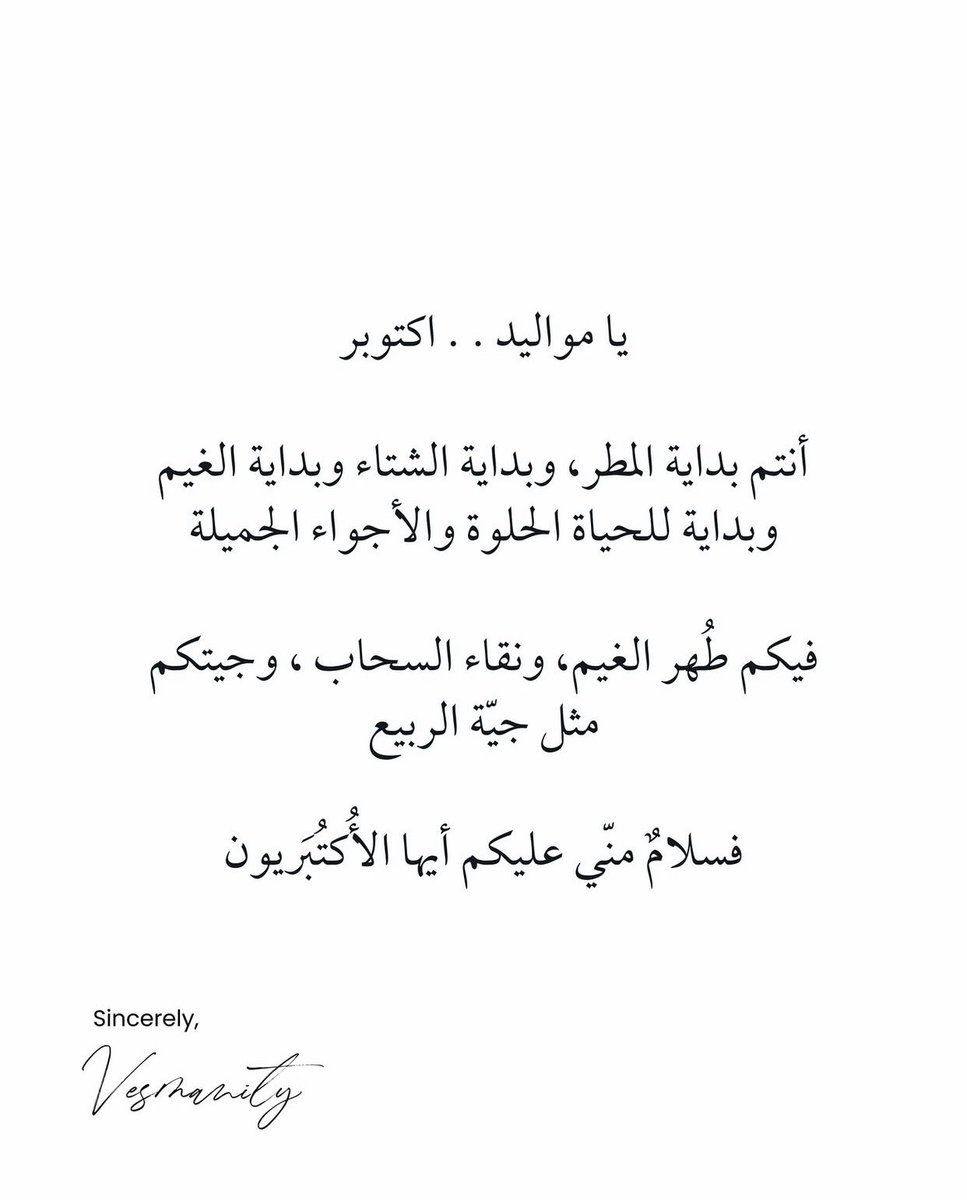 يا مواليد . . اكتوبر
أنتم بداية المطر، وبداية الشتاء وبداية الغيم
وبداية للحياة الحلوة والأجواء الجميلة
فيكم طُهر الغيم، ونقاء السحاب ، وجيتكم
مثل جيّة الربيع
فسلامٌ منّي عليكم أيها الأُكتُبَريون
Sincerely,
Vesmanity